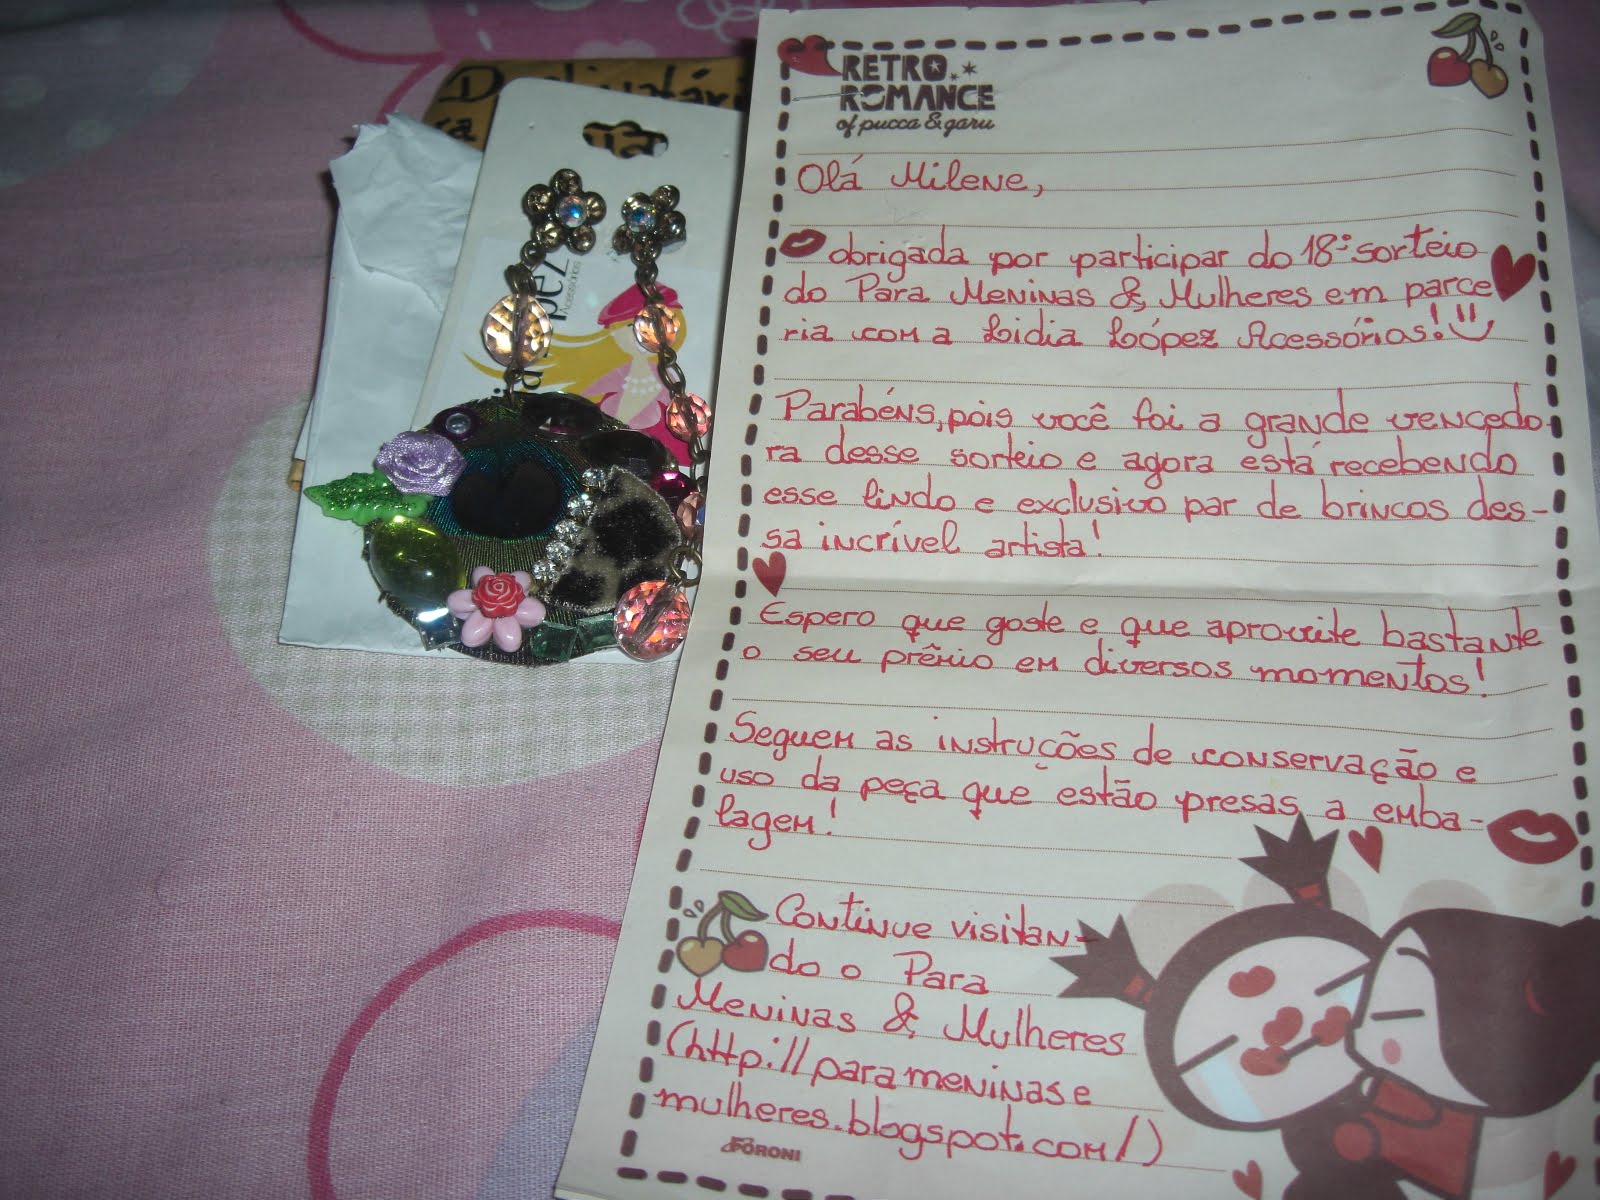 RETRO
ROMANCE
of pucca & garu
Olá Milene,
obrigada por participar do 18º sorteio
do Para Meninas & Mulheres em parce
ria com a Lidia López Acessórios!
Parabéns, pois você foi a grande vencedo
ra desse sorteio e agora está recebendo
esse lindo e exclusivo par de brincos des-
sa incrível artista!
Espero que goste e que aproveite bastante
o seu prêmio em diversos momentos!
Seguem as instruções de conservação e
uso da peça que estão presas a emba-
lagem!
Continue visitan-
do o Para
Meninas & Mulheres
(http://parameninase
mulheres.blogspot.com/)
FORONI
pez
Acessórios